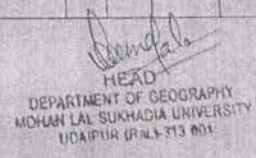 HEAD
DEPARTMENT OF GEOGRAPHY
MOHAN LAL SUKHADIA UNIVERSITY
UDAIPUR (RAJ.) 313 001